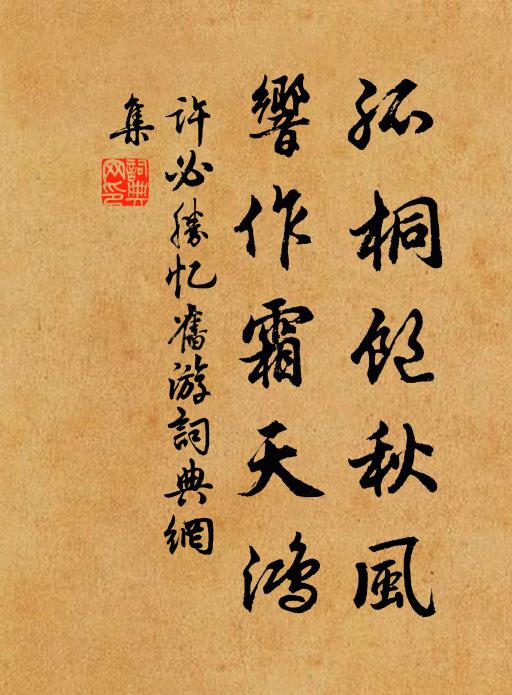 孤桐飽秋風
響作霜天鴻
許必勝忆舊游詞典網
集
詞典网印